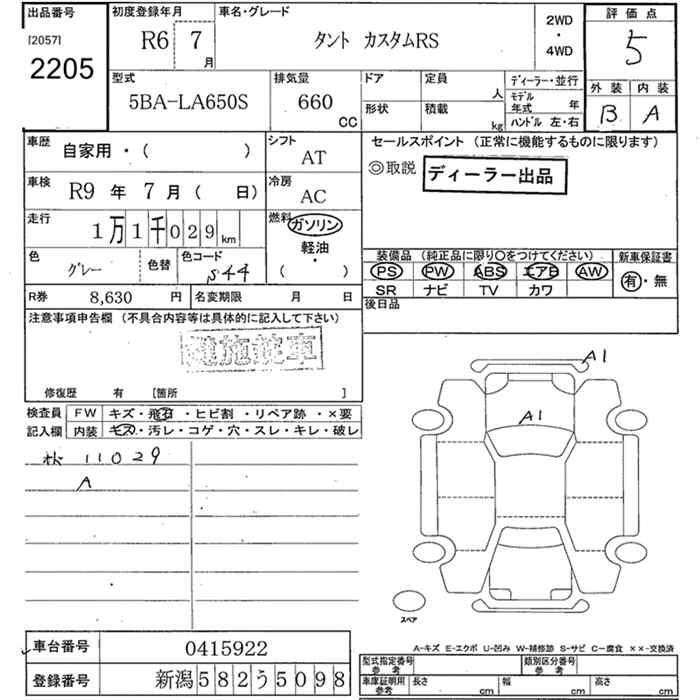 出品番号 初度登録年月 車名・グレード 2WD・4WD 評価点
[2057] 2205 R6 7月 タント カスタムRS 5
型式 排気量 ドア 定員 人 ディーラー・並行 外装 内装
5BA-LA650S 660 CC 形状 積載 kg モデル年式 年 B A
ハンドル 左・右
車歴 自家用・( ) シフト AT セールスポイント (正常に機能するものに限ります)
◎取説 ディーラー出品
車検 R9年 7月( 日) 冷房 AC
走行 1万1千029km 燃料 ガソリン
軽油
・
( )
色 グレー 色替 色コード S44
装備品 (純正品に限り○をつけてください) 新車保証書
PS PW ABS エアB AW 有・無
SR ナビ TV カワ
R券 8,630 円 名変期限 月 日 後日品
注意事項申告欄 (不具合内容等は具体的に記入して下さい)
修復歴 有 [箇所 ]
検査員 FW キズ・飛石・ヒビ割・リペア跡・×要
記入欄 内装 キズ・汚レ・コゲ・穴・スレ・キレ・破レ
11029
A
A1
A1
スペア
A-キズ E-エクボ U-凹み W-補修跡 S-サビ C-腐食 ××-交換済
車台番号 0415922
型式指定番号 参考 類別区分番号 参考
登録番号 新潟582う5098
車庫証明用 参考 長さ cm 幅 cm 高さ cm